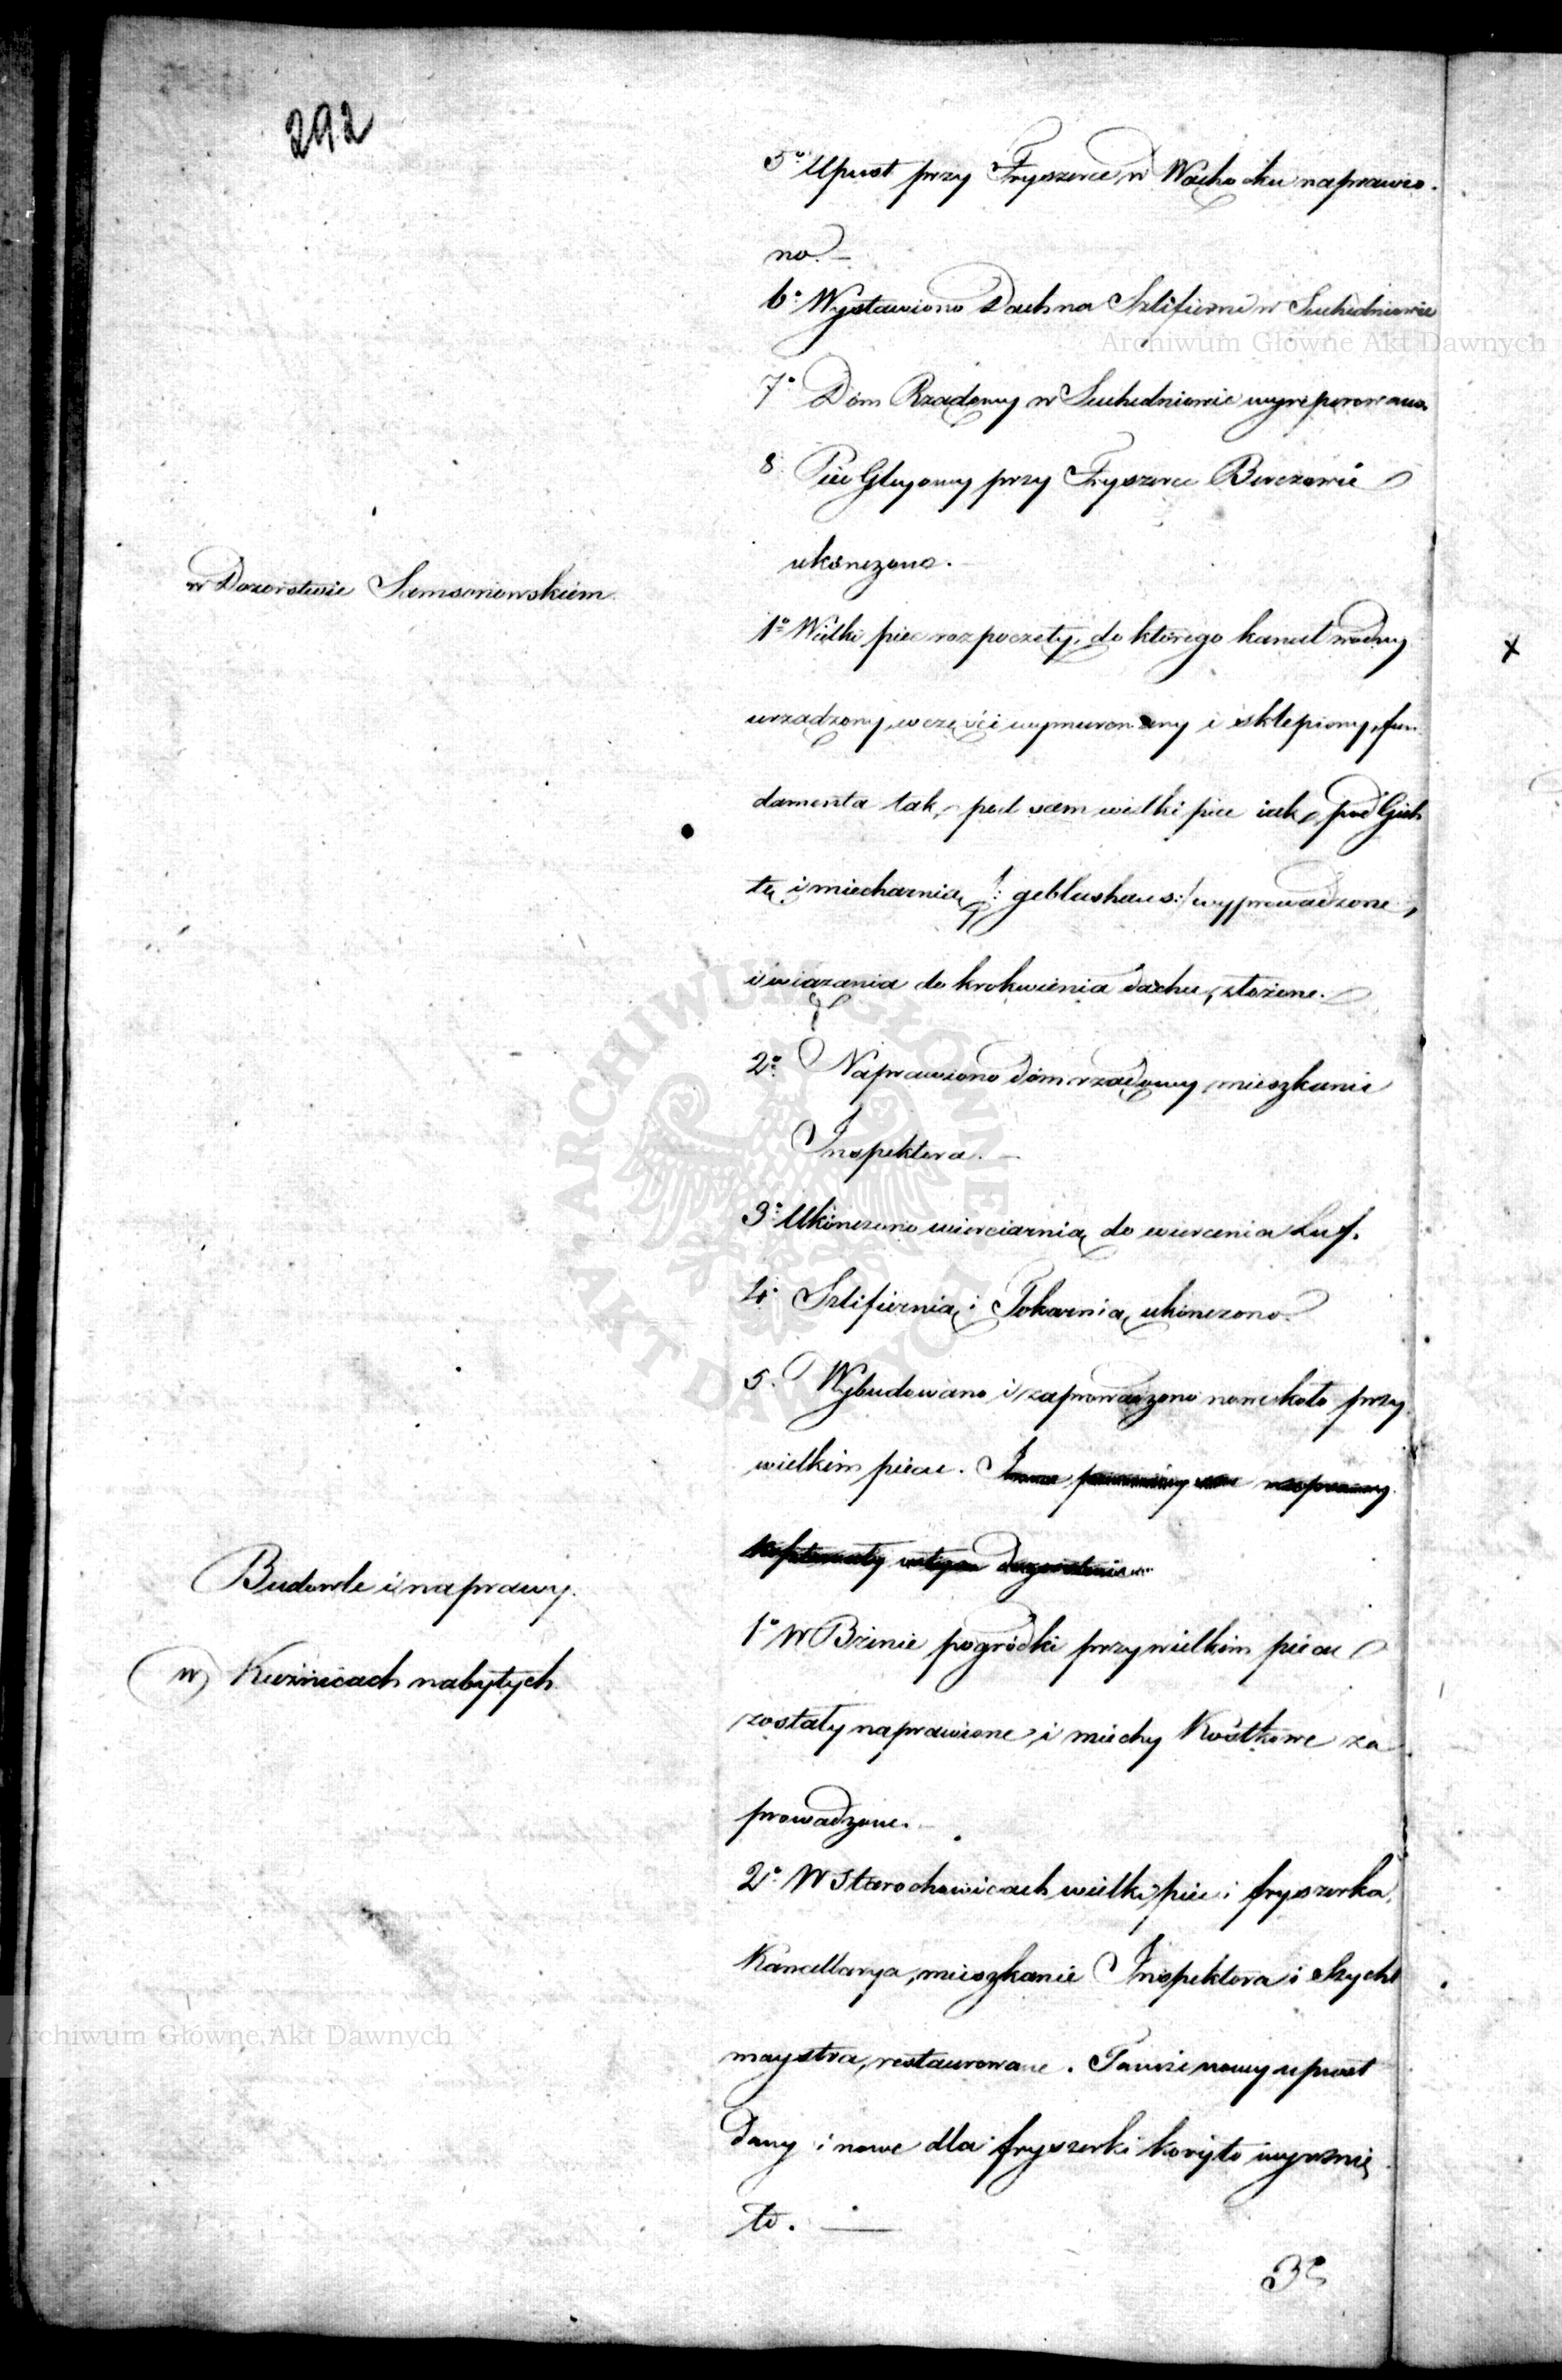 292
5º Upust przy Fryszerce w Wąchocku naprawio-
no. –
6º Wystawiono Dach na Szlifierni w Suchedniowie
7º Dóm Rządowy w Suchedniowie wyreperowano
8 Piec Glejowy przy Fryszerce Berezowie
ukończono. –
w Dozorstwie Samsonowskiem
1º Wielki piec rozpoczęty, do którego kanał wodny
urządzony, w części wymurowany i sklepiony, fun-
damenta tak, pod sam wielki piec iak, pod Gich
tę i miecharnią /: geblashaus :/ wyprowadzone,
i wiązania do krokwienia dachu, złożone.
2º Naprawiono dóm rządowy, mieszkanie
Inspektora. –
3º Ukończono wierciarnią do wiercenia Luf.
4º Szlifiernią i Tokarnią, ukończono.
5. Wybudowano i zaprowadzono nowe koło przy
wielkim piecu.
Budowle i naprawy.
w Kuźnicach nabytych
1º W Bzinie pogródki przy wielkim piecu
zostały naprawione, i miechy Kostkowe za
prowadzone. –
2º W Starachowicach wielki piec i fryszerka,
Kancellarya, mieszkanie Inspektora i Szycht
maystra, restaurowane. Tamże nowy upust
dany i nowe dla fryszerki koryto wyrznię
to. —
3º
Archiwum Główne Akt Dawnych
Archiwum Główne Akt Dawnych
ARCHIWUM GŁÓWNE AKT DAWNYCH